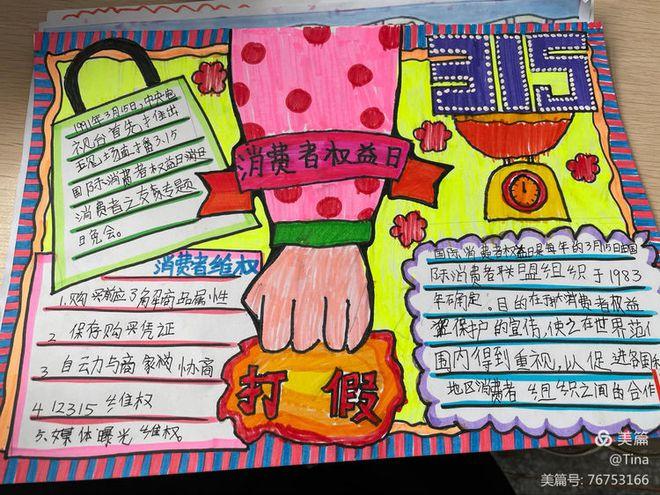 1991年3月15日,中央电
视台首先推出
现场直播3.15
国际消费者权益日消费
消费者之友专题
日晚会。
消费者权益日
315
消费者维权
1.购买前应了解商品属性
2 保存购买凭证
3 自云力与商家 协商
4 12315 维权
5.媒体曝光维权。
打假
国际消费者权益日是每年的3月15日由国
际消费者联盟组织于1983
年确定。目的在扩大消费者权益
保护的宣传,使之在世界范
围内得到重视,以促进各国和
地区消费者组织之间的合作
美篇
@Tina
美篇号: 76753166